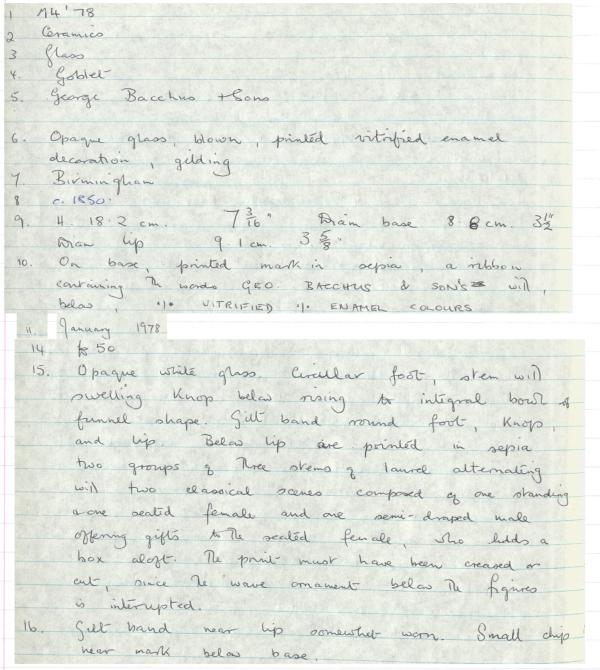 1 M4 '78
2 Ceramics
3 Glass
4. Goblet
5. George Bacchus + Sons
6. Opaque glass, blown, printed vitrified enamel
decoration, gilding
7. Birmingham
8 c. 1850.
9. H. 18.2 cm. 7 3/16" Diam base 8.8 cm. 3 1/2"
Diam lip 9.1 cm. 3 5/8"
10. On base, printed mark in sepia, a ribbon
containing the words GEO. BACCHUS & SON'S with,
below, ·/· VITRIFIED ·/· ENAMEL COLOURS
11. January 1978
14 £50
15. Opaque white glass. Circular foot, stem with
swelling Knop below rising to integral bowl of
funnel shape. Gilt band round foot, Knop,
and lip. Below lip are printed in sepia
two groups of three stems of laurel alternating
with two classical scenes composed of one standing
& one seated female and one semi-draped male
offering gifts to the seated female, who holds a
box aloft. The print must have been creased or
cut, since the wave ornament below the figures
is interrupted.
16. Gilt band near lip somewhat worn. Small chip
near mark below base.